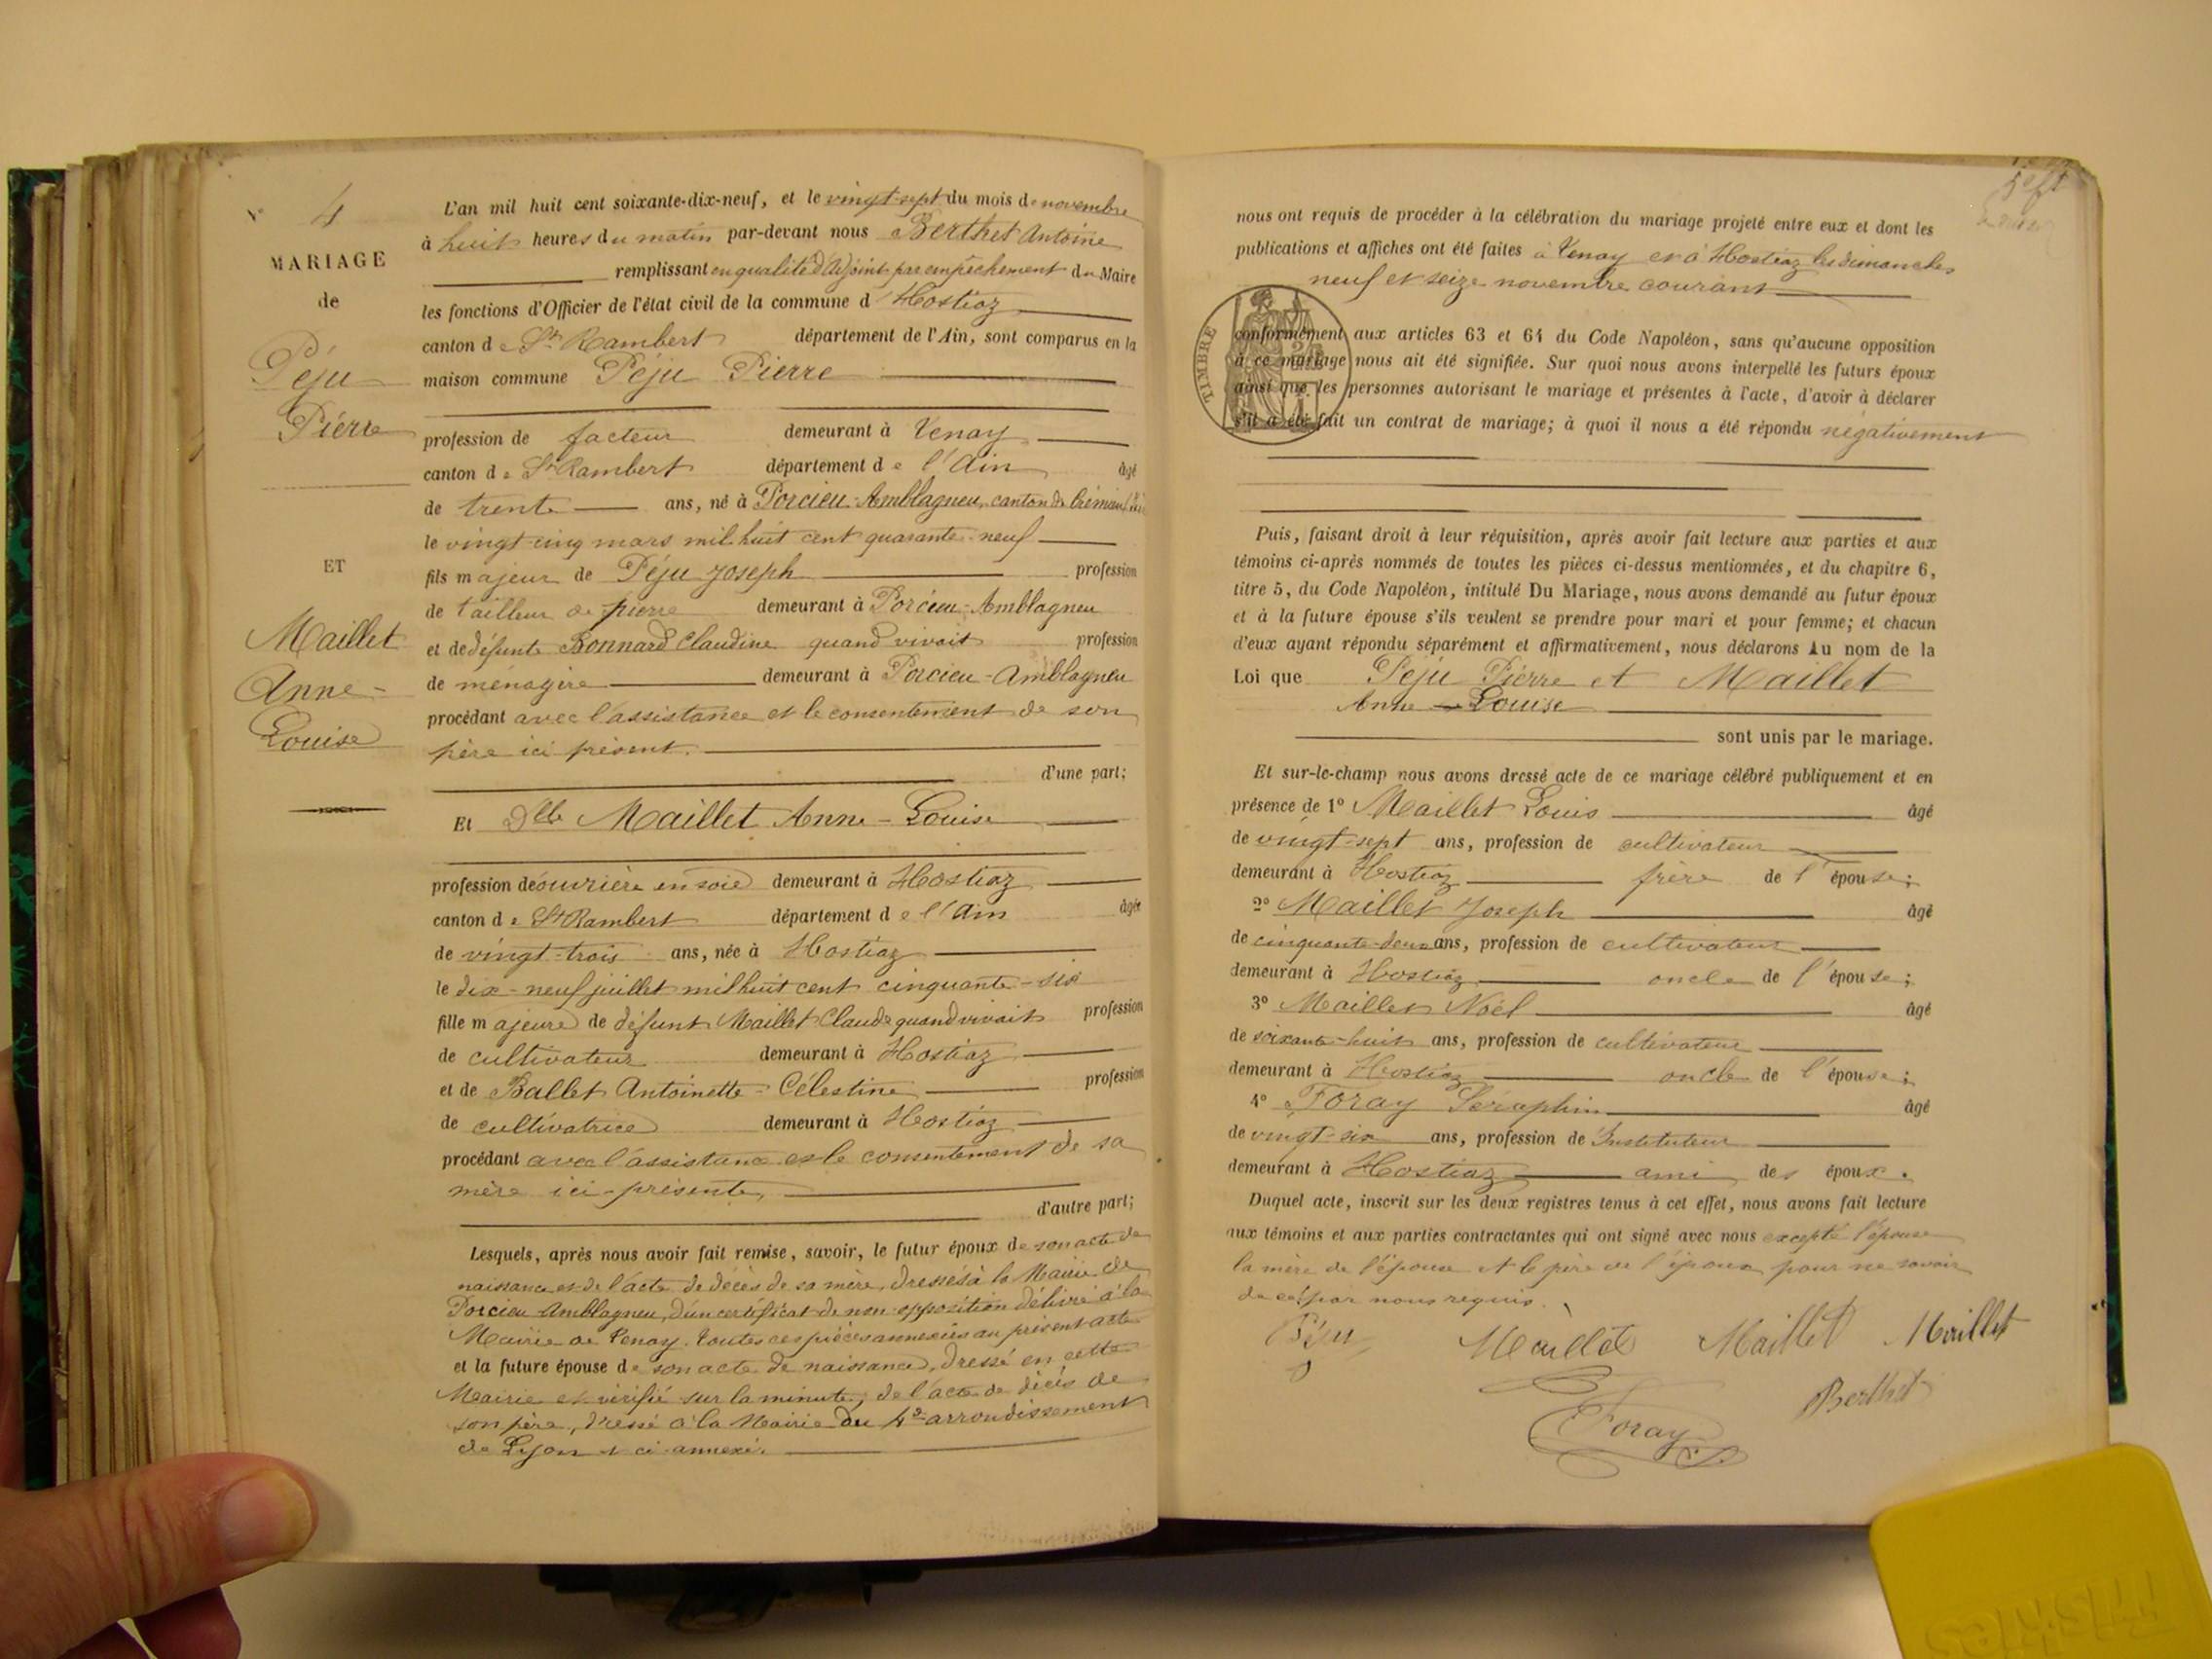 N° 4
MARIAGE
de
Péju
Pierre
ET
Maillet
Anne-
Louise
L'an mil huit cent soixante-dix-neuf, et le vingt-sept du mois de novembre
à huit heures du matin par-devant nous Berthet Antoine
remplissant en qualité d'adjoint par empêchement du Maire
les fonctions d'Officier de l'état civil de la commune d'Hostiaz
canton de St Rambert département de l'Ain, sont comparus en la
maison commune Péju Pierre
profession de facteur demeurant à Tenay
canton de St Rambert département de l'Ain âgé
de trente ans, né à Porcieu-Amblagneu, canton de Crémieu
le vingt-cinq mars mil huit cent quarante-neuf
fils majeur de Péju Joseph profession
de tailleur de pierre demeurant à Porcieu-Amblagneu
et de défunte Bonnard Claudine quand vivait profession
de ménagère demeurant à Porcieu-Amblagneu
procédant avec l'assistance et le consentement de son
père ici présent.
d'une part;
Et Dlle Maillet Anne-Louise
profession de ouvrière en soie demeurant à Hostiaz
canton de St Rambert département de l'Ain âgée
de vingt-trois ans, née à Hostiaz
le dix-neuf juillet mil huit cent cinquante-six
fille majeure de défunt Maillet Claude quand vivait profession
de cultivateur demeurant à Hostiaz
et de Ballet Antoinette-Célestine profession
de cultivatrice demeurant à Hostiaz
procédant avec l'assistance et le consentement de sa
mère ici-présente,
d'autre part;
Lesquels, après nous avoir fait remise, savoir, le futur époux de son acte de
naissance et de l'acte de décès de sa mère, dressés à la Mairie de
Porcieu-Amblagneu, d'un certificat de non-opposition délivré à la
Mairie de Tenay. toutes ces pièces annexées au présent acte
et la future épouse de son acte de naissance, dressé en cette
Mairie et vérifié sur la minute, de l'acte de décès de
son père, dressé à la Mairie du 4e arrondissement
de Lyon et ci-annexé.
nous ont requis de procéder à la célébration du mariage projeté entre eux et dont les
publications et affiches ont été faites à Tenay et à Hostiaz les dimanches
neuf et seize novembre courant
TIMBRE
conformément aux articles 63 et 64 du Code Napoléon, sans qu'aucune opposition
à ce mariage nous ait été signifiée. Sur quoi nous avons interpellé les futurs époux
ainsi que les personnes autorisant le mariage et présentes à l'acte, d'avoir à déclarer
s'il a été fait un contrat de mariage; à quoi il nous a été répondu négativement
Puis, faisant droit à leur réquisition, après avoir fait lecture aux parties et aux
témoins ci-après nommés de toutes les pièces ci-dessus mentionnées, et du chapitre 6,
titre 5, du Code Napoléon, intitulé Du Mariage, nous avons demandé au futur époux
et à la future épouse s'ils veulent se prendre pour mari et pour femme; et chacun
d'eux ayant répondu séparément et affirmativement, nous déclarons Au nom de la
Loi que Péju Pierre et Maillet
Anne-Louise
sont unis par le mariage.
Et sur-le-champ nous avons dressé acte de ce mariage célébré publiquement et en
présence de 1° Maillet Louis âgé
de vingt-sept ans, profession de cultivateur
demeurant à Hostiaz frère de l'épouse;
2° Maillet Joseph âgé
de cinquante-deux ans, profession de cultivateur
demeurant à Hostiaz oncle de l'épouse;
3° Maillet Noël âgé
de soixante-huit ans, profession de cultivateur
demeurant à Hostiaz oncle de l'épouse;
4° Foray Séraphin âgé
de vingt-six ans, profession de Instituteur
demeurant à Hostiaz ami des époux.
Duquel acte, inscrit sur les deux registres tenus à cet effet, nous avons fait lecture
aux témoins et aux parties contractantes qui ont signé avec nous excepté l'épouse
la mère de l'épouse et le père de l'époux pour ne savoir
de ce par nous requis.
Péju Maillet Maillet Maillet
Foray Berthet